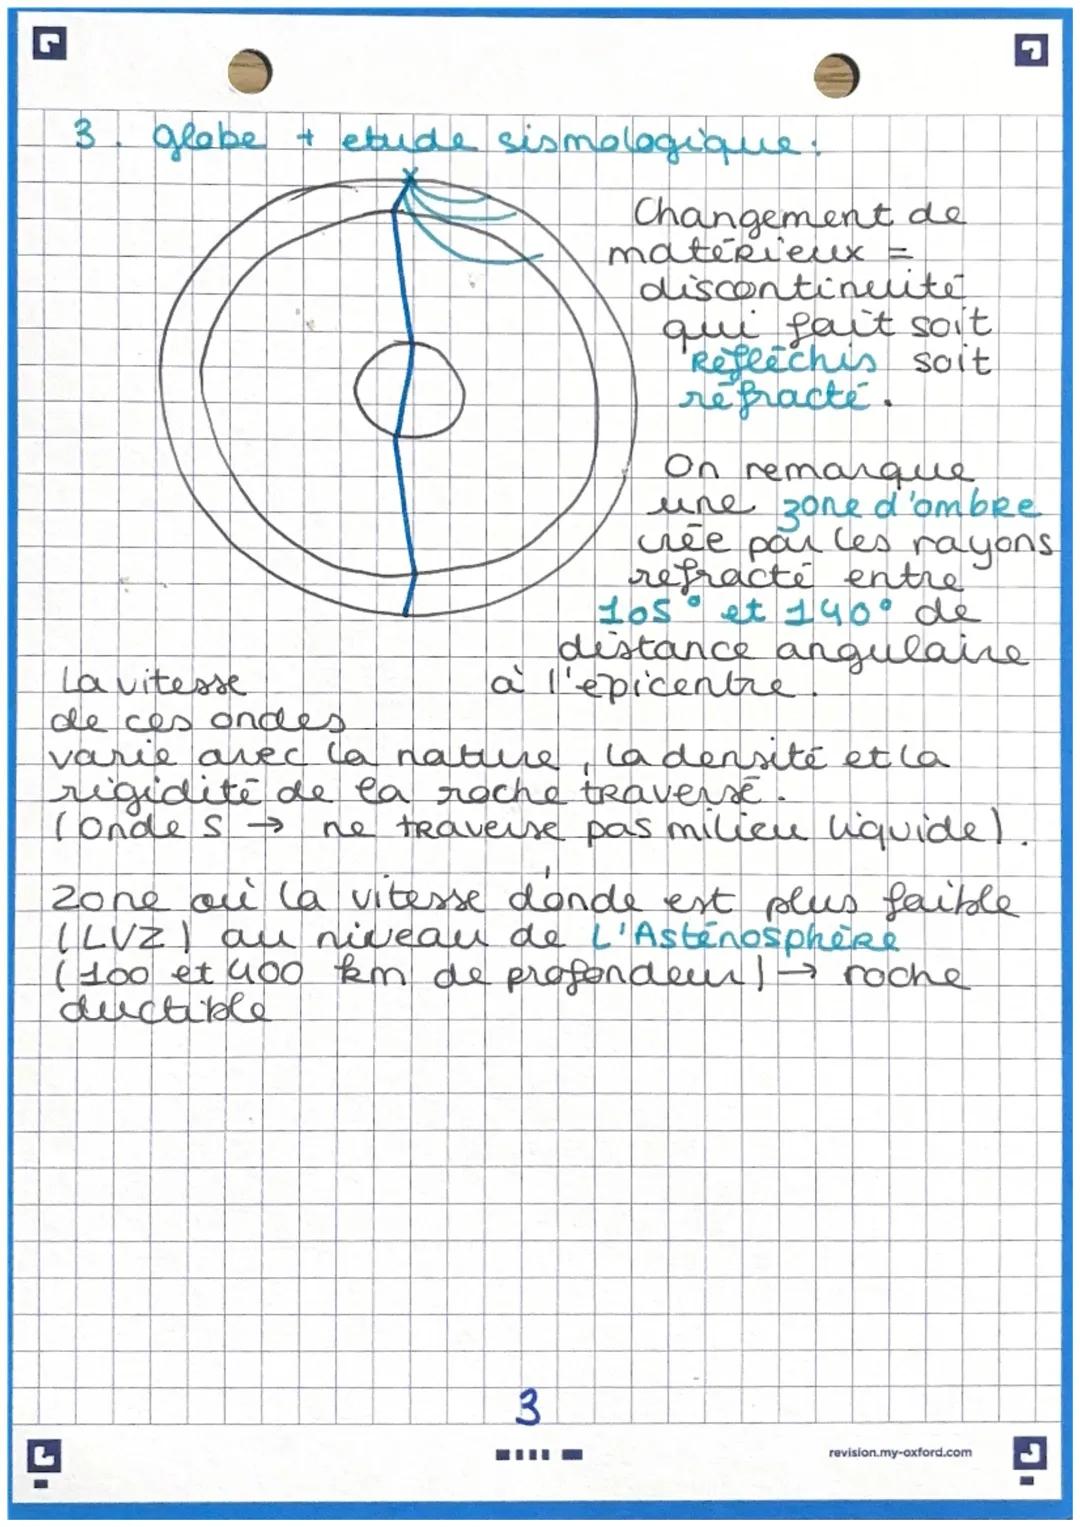 3. globe + etude sismologique:
Changement de
matérieux =
discontinuité
qui fait soit
Réfléchis soit
réfracté.
On remarque
une zone d'ombre
créé par les rayons
refracté entre
105° et 140° de
distance angulaire
à l'épicentre.
La vitesse
de ces ondes
varie avec la nature, la densité et la
rigidité de la roche traversé.
(Onde S → ne traverse pas milieu liquide).
Zone où la vitesse d'onde est plus faible
(LVZ) au niveau de L'Asténosphère
(100 et 400 km de profondeur) → roche
ductible
3
revision.my-oxford.com